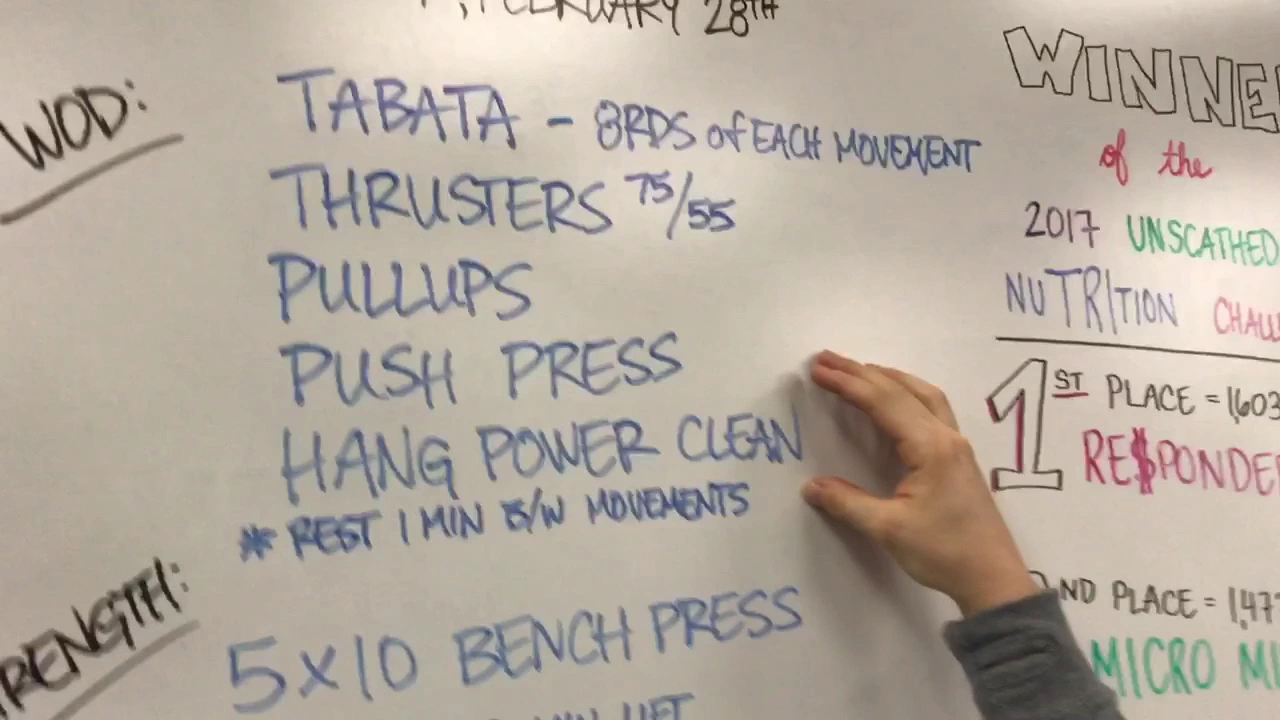 FEBRUARY 28TH
WOD:
TABATA - 8RDS of EACH MOVEMENT
THRUSTERS 75/55
PULLUPS
PUSH PRESS
HANG POWER CLEAN
* REST 1 MIN B/W MOVEMENTS
5x10 BENCH PRESS
of the
2017 UNSCATHED
NUTRITION
1ST PLACE = 1,603
PLACE =
MICRO